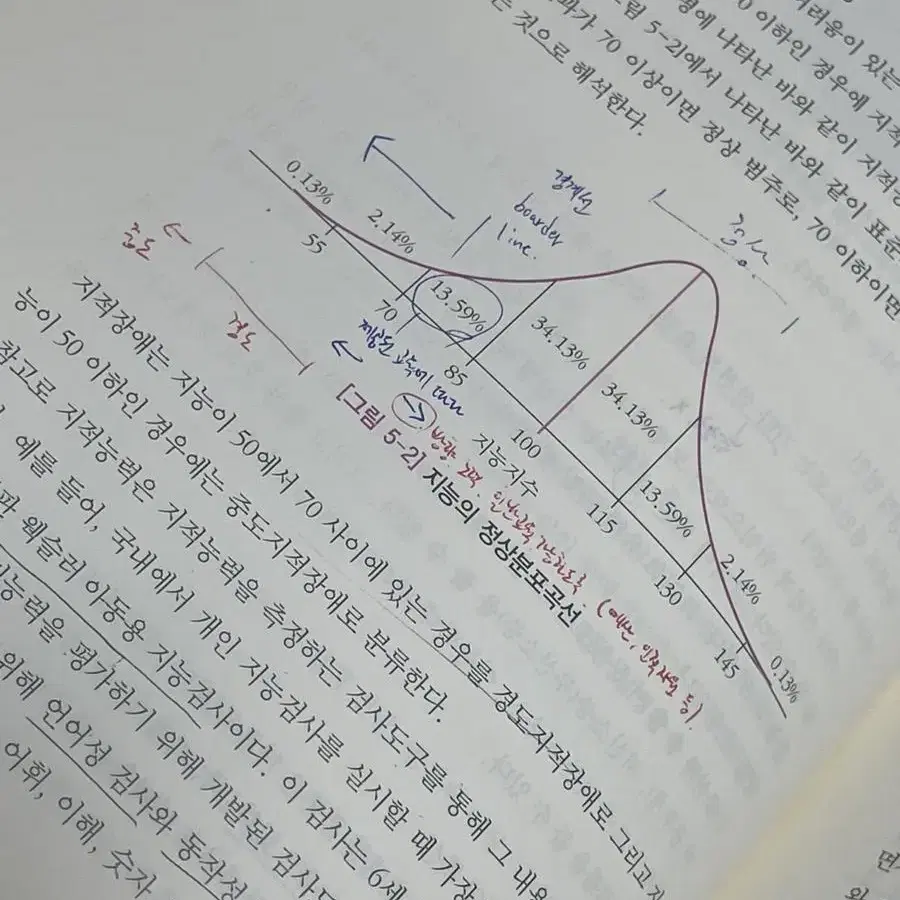 러움이 있는
0 이하인 경우에 지적
형에 나타난 바와 같이 지적장
그림 5-2]에서 나타난 바와 같이 표준
과가 70 이상이면 정상 범주로, 70 이하이면
는 것으로 해석한다.
정상
경계선
boarder
line.
0.13%
2.14%
13.59%
34.13%
34.13%
13.59%
2.14%
0.13%
55
70
85
100
115
130
145
중도
경도
지능지수
[그림 5-2] 지능의 정상분포곡선
지적장애는 지능이 50에서 70 사이에 있는 경우를 경도지적장애로 그리고 지
능이 50 이하인 경우에는 중도지적장애로 분류한다.
참고로 지적능력은 지적능력을 측정하는 검사도구를 통해 그 내용
예를 들어, 국내에서 개인 지능검사를 실시할 때 가장
웩슬러 아동용 지능검사이다. 이 검사는 6세
능력을 평가하기 위해 개발된 검사
위해 언어성 검사와 동작성
어휘, 이해, 숫자